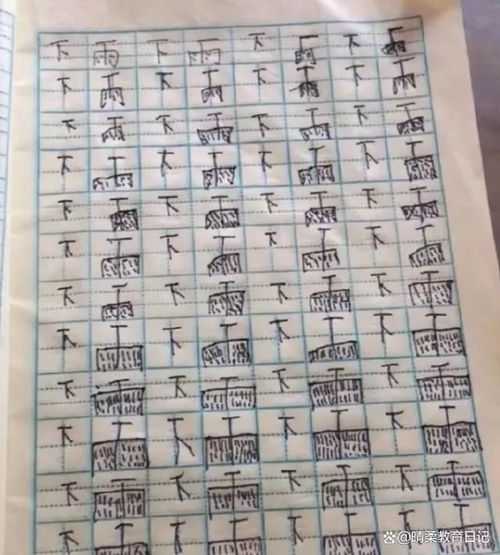 下雨下雨下雨下雨
下雨下雨下雨下雨
下雨下雨下雨下雨
下雨下雨下雨下雨
下雨下雨下雨下雨
下雨下雨下雨下雨
下雨下雨下雨下雨
下雨下雨下雨下雨
下雨下雨下雨下雨
下雨下雨下雨下雨
下雨下雨下雨下雨
下雨下雨下雨下雨
@晴柔教育日记